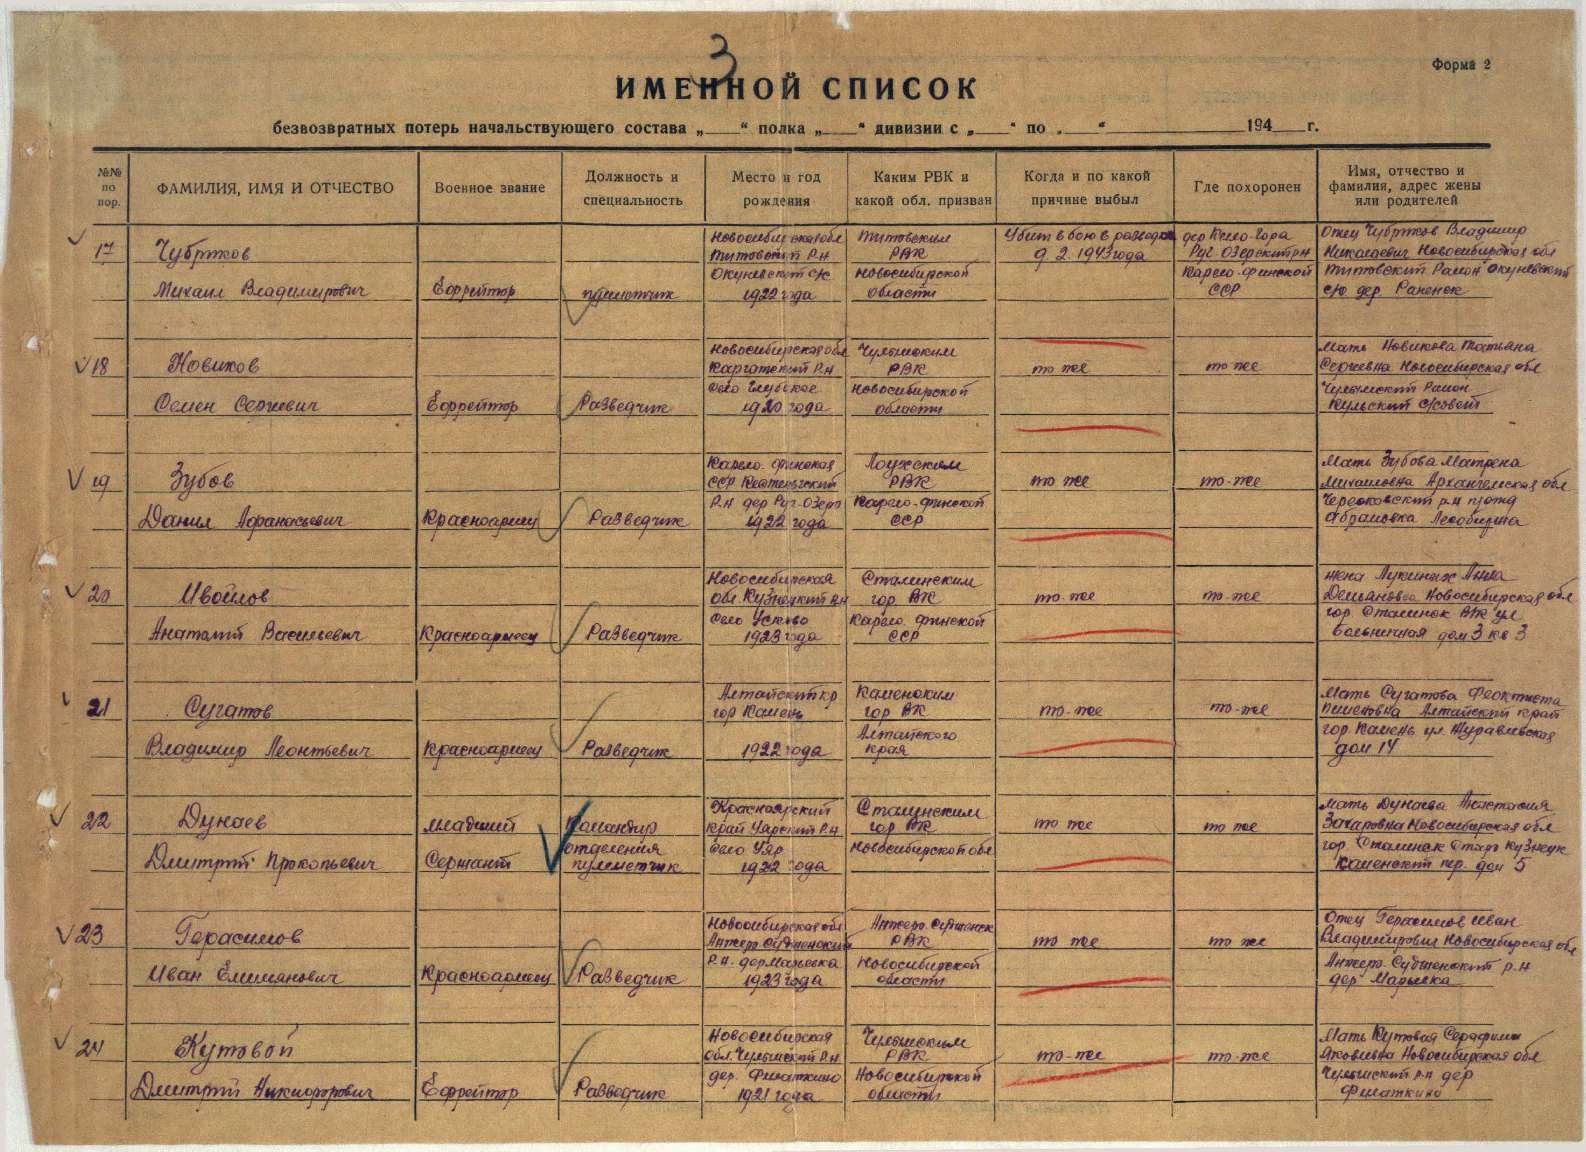 3
Форма 2
ИМЕННОЙ СПИСОК
безвозвратных потерь начальствующего состава „___“ полка „___“ дивизии с „___“ по „___“ ___ 194__г.
№№ по пор.
ФАМИЛИЯ, ИМЯ И ОТЧЕСТВО
Военное звание
Должность и специальность
Место и год рождения
Каким РВК и какой обл. призван
Когда и по какой причине выбыл
Где похоронен
Имя, отчество и фамилия, адрес жены или родителей
17
Чубртков
Михаил Владимирович
Ефрейтор
пулеметчик
Новосибирская обл
Титовский Р-Н
Окуневский с/с
1922 года
Титовским
РВК
Новосибирской
области
Убит в бою в разведке
9. 2. 1943 года
дер Кело-Гора
Руг-Озерский рн
Карело-финской
ССР
Отец Чубртков Владимир
Николаевич Новосибирская обл
Титовский Район Окуневский
с/с дер
18
Новиков
Семен Сергеевич
Ефрейтор
Разведчик
Новосибирская обл
Каргатский Р-Н
село Глубокое
1920 года
Чулымским
РВК
Новосибирской
области
то же
то же
Мать Новикова Татьяна
Сергеевна Новосибирская обл
Чулымский Район
Кульский с/совет
19
Зубов
Данил Афанасьевич
Красноармеец
Разведчик
Карело-финская
ССР Кестеньгский
Р-Н дер Руг-Озеро
1922 года
Лоухским
РВК
Карело-финской
ССР
то же
то-же
Мать Зубова Матрена
Михаиловна Архангельская обл
р-н
20
Ивойлов
Анатолий Васильевич
Красноармеец
Разведчик
Новосибирская
обл. Кузнецкий Р-Н
село
1923 года
Сталинским
гор. ВК
Карело финской
ССР
то-же
то-же
жена Лукиных Анна
Демьяновна Новосибирская обл
гор. Сталинск ул
Больничная дом 3 кв 3
21
Сугатов
Владимир Леонтьевич
Красноармеец
Разведчик
Алтайский кр
гор Камень
1922 года
Каменским
гор ВК
Алтайского
края
то-же
то-же
Мать Сугатова Феоктиста
Алтайский край
гор. Камень ул. Журавлевская
дом 14
22
Дунаев
Дмитрий Прокопьевич
младший
Сержант
Командир
отделения
пулеметчик
Красноярский
край Уярский Р-Н
село Уяр
1922 года
Сталинским
гор ВК
Новосибирской обл
то же
то же
Мать Дунаева Анастасия
Захаровна Новосибирская обл
гор. Сталинск Стар Кузнецк
Каменский пер. дом 5
23
Герасимов
Иван Емельянович
Красноармеец
Разведчик
Новосибирская обл
Анжеро Судженский
Р-Н. дер Марьевка
1923 года
Анжеро. Судженск
РВК
Новосибирской
области
то же
то же
Отец Герасимов Иван
Владимирович Новосибирская обл
Анжеро. Судженский р-н
дер Марьевка
24
Кутовой
Дмитрий Никифорович
Ефрейтор
Разведчик
Новосибирская
обл. Чулымский Р-Н
дер. Филаткино
1921 года
Чулымским
РВК
Новосибирской
области
то-же
то-же
Мать Кутовая Серафима
Яковлевна Новосибирская обл
Чулымский р-н дер
Филаткино